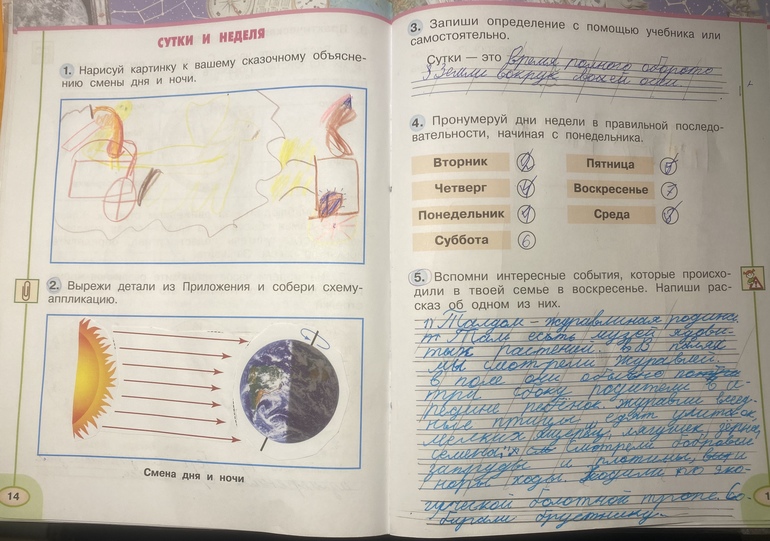 СУТКИ И НЕДЕЛЯ
1. Нарисуй картинку к вашему сказочному объясне-
нию смены дня и ночи.
2. Вырежи детали из Приложения и собери схему-
аппликацию.
Смена дня и ночи
14
3. Запиши определение с помощью учебника или
самостоятельно.
Сутки — это время полного оборота
Земли вокруг своей оси.
4. Пронумеруй дни недели в правильной последо-
вательности, начиная с понедельника.
Вторник 2 Пятница 5
Четверг 4 Воскресенье 7
Понедельник 1 Среда 3
Суббота 6
5. Вспомни интересные события, которые происхо-
дили в твоей семье в воскресенье. Напиши рас-
сказ об одном из них.
Талдом - журавлиная родина
Там есть музей ядови-
тых растений. В полях
мы смотрели журавлей.
В поле они обычно
три сбоку родители в се-
редине ребёнок. журавли всеяд-
ные птицы едят улиток,
мелких ящериц, лягушек, зёрна,
семена. смотрели бобровые
запруды и плотины,
норы ходы. Ходили по эко-
гической болотной тропе. Со-
бирали бруснику.